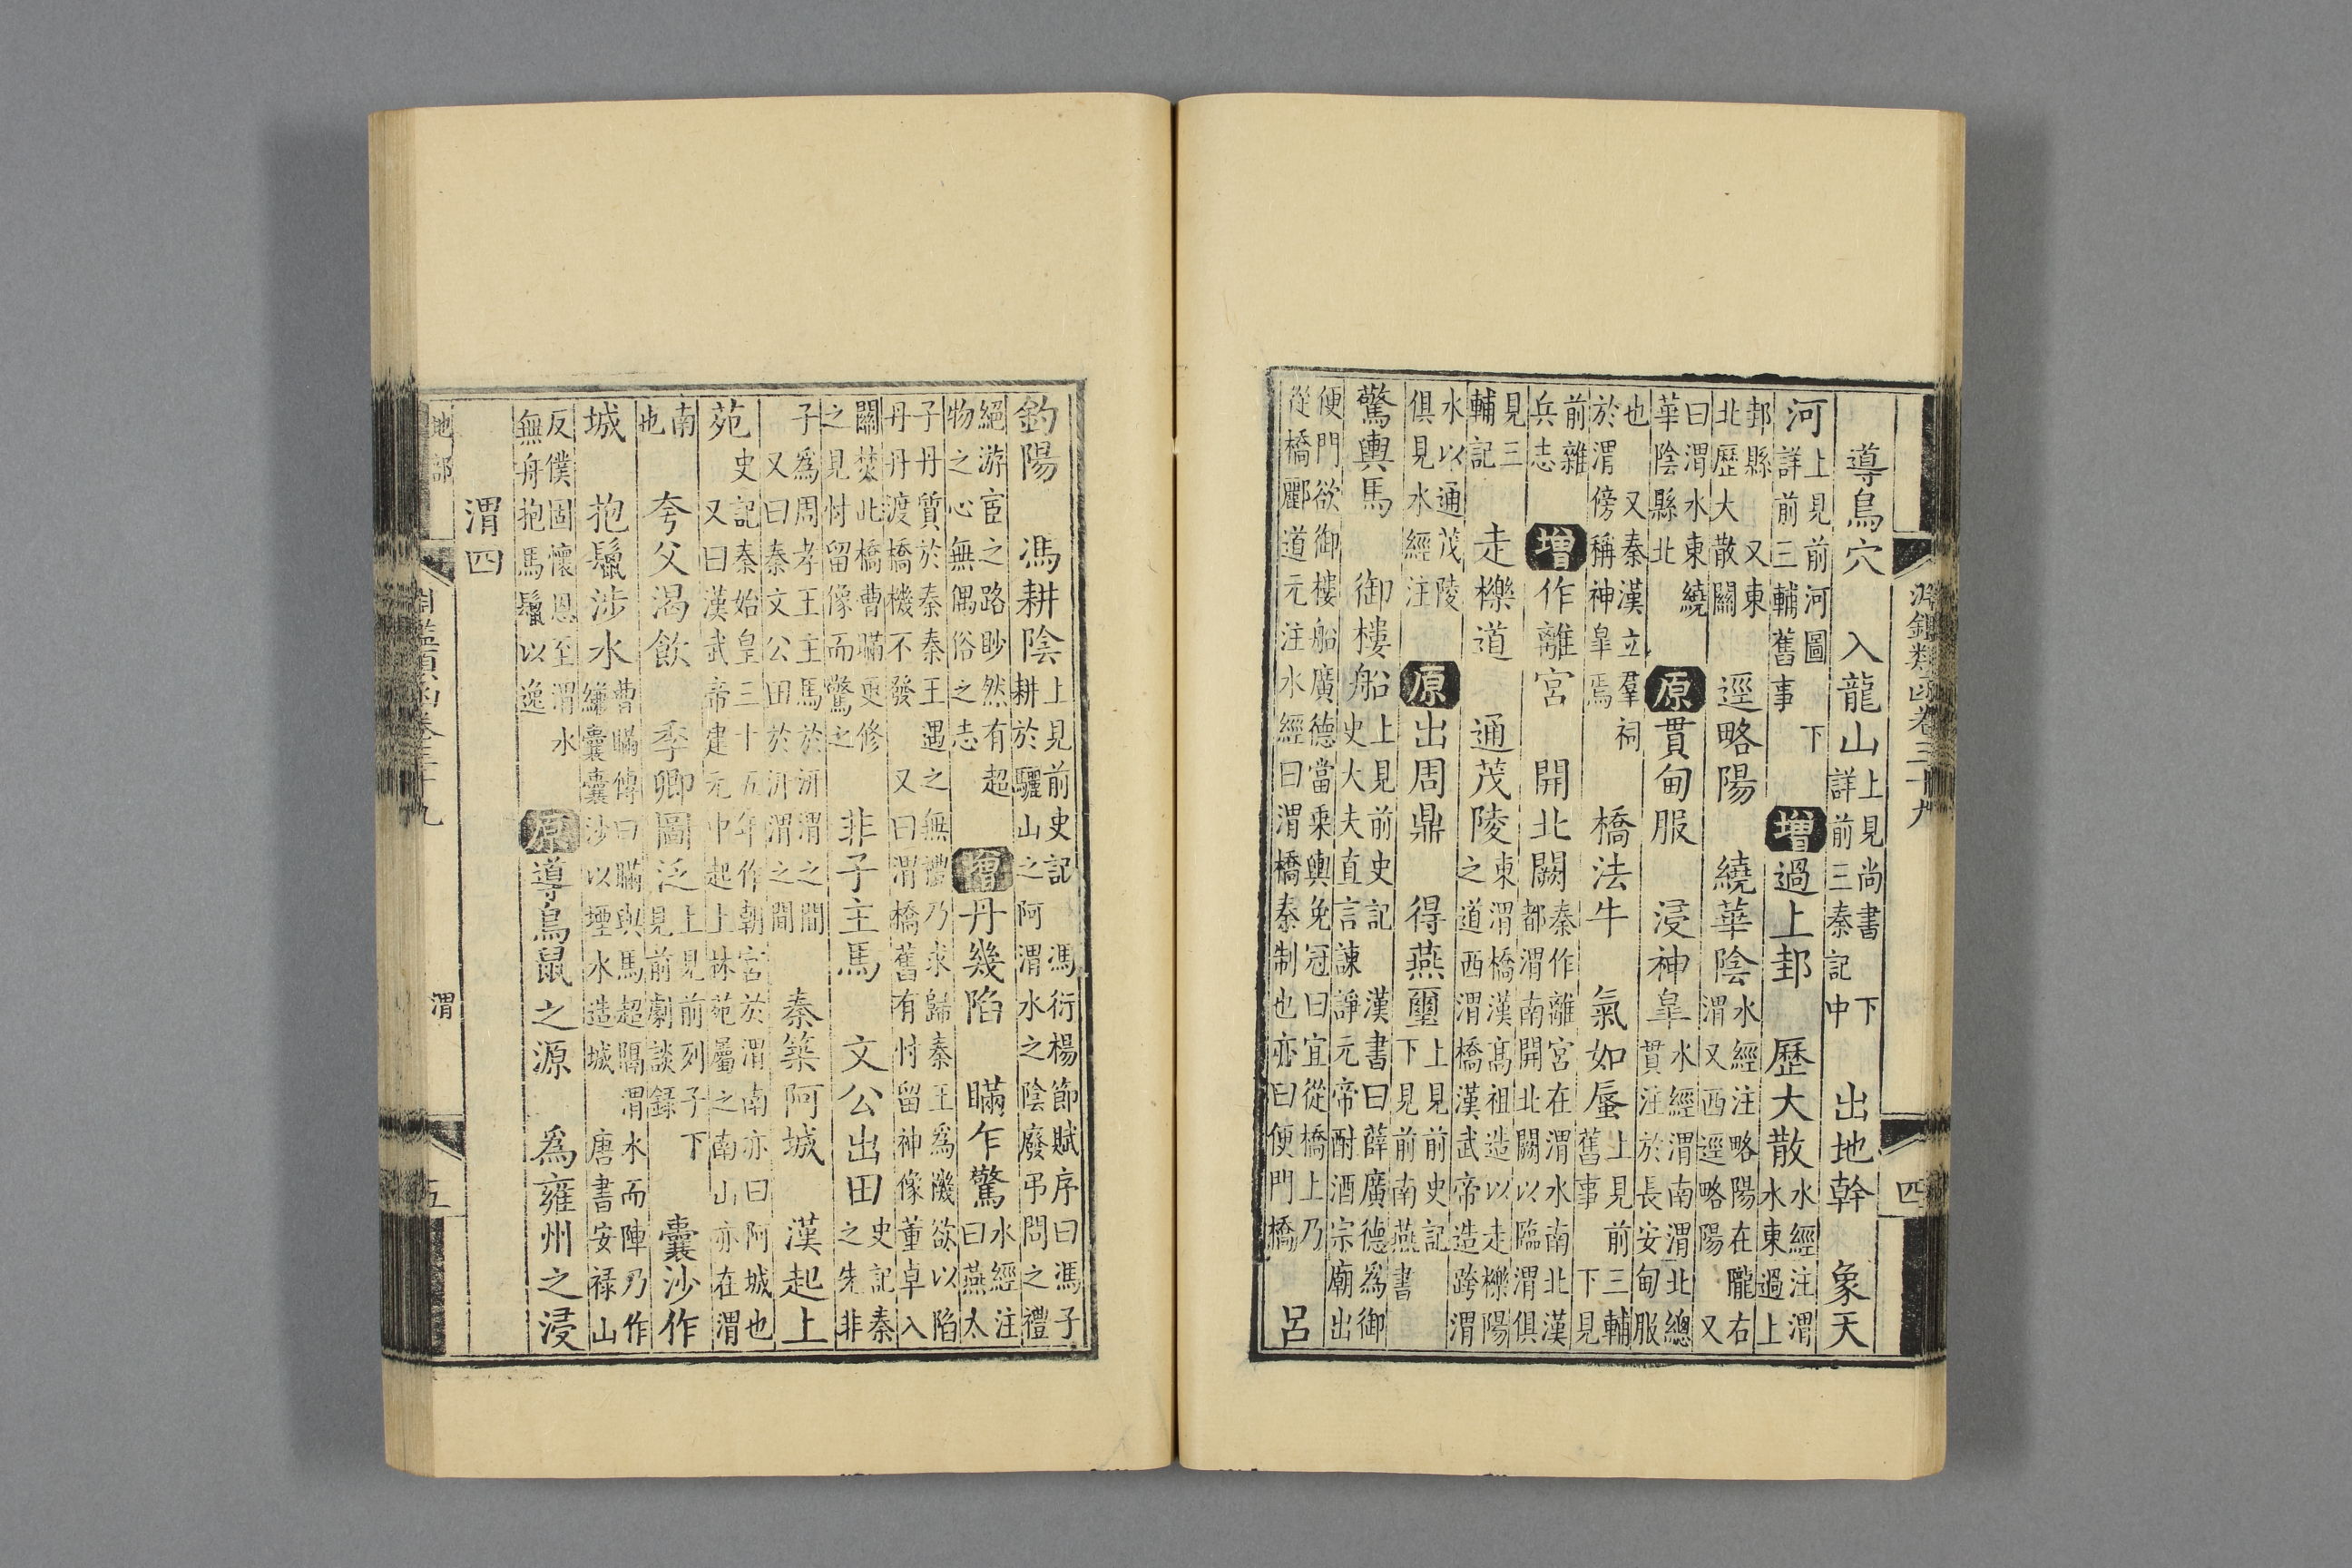 淵鑑類函卷三十九 四
導鳥穴 入龍山 上見尚書下詳前三秦記中 出地幹 象天
河 上見前河圖下詳前三輔舊事 增 過上邽 歷大散 水經注渭水東過上
邽縣又東北歷大散關 逕略陽 繞華陰 水經注略陽在隴右渭又西逕略陽又
曰渭水東繞華陰縣北 原 貫甸服 浸神臯 水經渭南渭北總貫注於長安甸服
也又秦漢立羣祠於渭傍稱神臯焉 橋法牛 氣如蜃 上見前三輔舊事下見
前雜兵志 增 作離宮 開北闕 秦作離宮在渭水南北漢都渭南開北闕以臨渭俱
見三輔記 走櫟道 通茂陵 東渭橋漢髙祖造以走櫟陽之道西渭橋漢武帝造跨渭
水以通茂陵俱見水經注 原 出周鼎 得燕璽 上見前史記下見前南燕書
驚輿馬 御樓船 上見前史記 漢書曰薛廣德爲御史大夫直言諫諍元帝酎酒宗廟出
便門欲御樓船廣德當乗輿免冠曰宜從橋上乃從橋酈道元注水經曰渭橋秦制也亦曰便門橋 呂
釣陽 馮耕陰 上見前史記 馮衍楊節賦序曰馮子耕於驪山之阿渭水之陰廢弔問之禮
絕游宦之路眇然有超物之心無偶俗之志 增 丹幾陷 瞞乍驚 水經注曰燕太
子丹質於秦秦王遇之無禮乃求歸秦王爲機欲以陷丹丹渡橋機不發 又曰渭橋舊有忖留神像董卓入
關焚此橋曹瞞更修之見忖留像而驚之 非子主馬 文公出田 史記秦之先非
子爲周孝王主馬於汧渭之間又曰秦文公田於汧渭之間 秦築阿城 漢起上
苑 史記秦始皇三十五年作朝宮於渭南亦曰阿城也又曰漢武帝建元中起上林苑屬之南山亦在渭
南也 夸父渴飲 季卿圖泛 上見前列子下見前劇談錄 囊沙作
城 抱鬣涉水 曹瞞傳曰瞞與馬超隔渭水而陣乃作縑囊囊沙以堙水造城 唐書安祿山
反僕固懷恩至渭水無舟抱馬鬣以逸 原 導鳥鼠之源 爲雍州之浸
渭四
地部 淵鑑類函卷三十九 渭 五